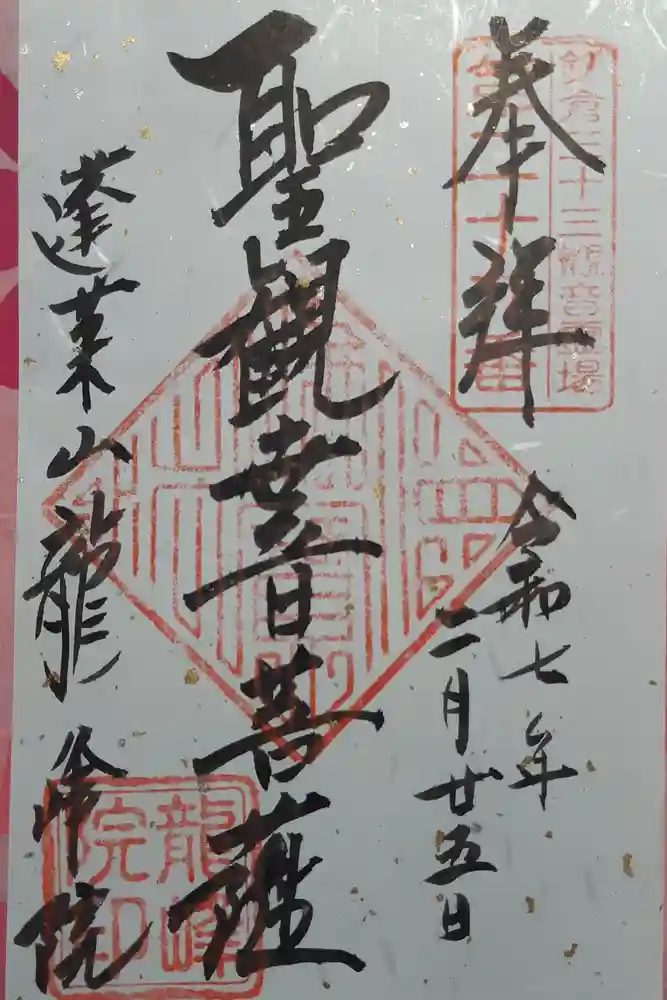 奉拝
鎌倉三十三観音霊場
令和七年
二月廿五日
聖観世音菩薩
蓬莱山龍峰院
龍峰
院印